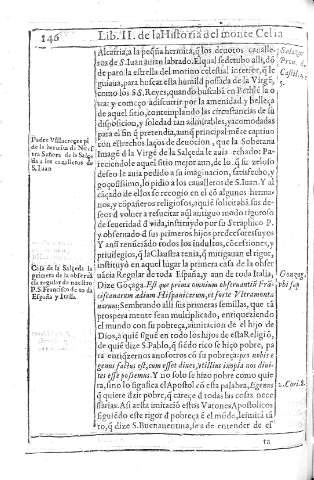 146
Lib. II. de la Historia del monte Celia
Alcarria, a la pequña hermita, q̃ los deuotos cauallе-
ros de S. Iuan auian labrado. El qual sedetubo alli, dõ
de paro la estrella del mouino celestial interior, q̃ le
guiaua, para buscar esta humild possada de la Virgẽ,
como los SS. Reyes, quando buscabã en
uar: y comẽço adiscurrir por la amenidad, y belleça
de aquel sitio, contemplando las circunstancias de su
disposicion, y soledad tan admirables, y acomodadas
para el fin q̃ pretendia, aunq̃ principal mẽte captiuo
con estrechos laços de deuocion, que la Soberana
Imagẽ d̃ la Virgẽ de la Salçeda le auia echado: Pa-
reciendole aquel sitio mejor aun, de lo q̃ su zeloso
deseo le auia pedido a su imaginacion, satisfecho, y
goçosissimo, lo pidio a los caualleros de S. Iuan. Y al
cãçado de ellos se recogio en el cõ algunos herma-
nos, y cõpañeros religiosos, aquiẽ solicitaba sus de-
seos d̃ voluer a resucitar aq̃l antiguo modo riguroso
de seueridad d̃ vida, instituydo por su Seraphico P.
y obseruado d̃ sus primeros hijos predecessores suyos
Y ansi renũciãdo todos los indultos, cõcessiones, y
priuilegios, q̃ la Claustra tenia, q̃ mitigauan el rigor,
instituyò en aquel lugar la primera casa de la obser
uãcia Regular de toda España, y aun de toda Italia,
Dize Goçaga. Est que primo omnium obseruantiũ Frã-
ciscanarum ædium Hispanicarum, et forte Vltramonta-
narum: Sembrando alli sus primeras semillas, que tã
prospera mente sean multiplicado, enriqueziendo
el mundo con su pobreça, aimitacion de el hijo de
Dios, a quiẽ sigue en todo los hijos de esta Religiõ,
de quiẽ dize S. Pablo, q̃ siẽdo rico se hiço pobre, pa
ra enriqzernos anosotros cõ su pobreça: pes nobis e
genus factus est, cum esset diues, vt illius inopia nos diui-
tes esse possemus. Y no solo se hizo pobre como quie
ra, sino lo significa el Apostol cõ esta palabra, Egenus
q̃ quiere dzir pobre, q̃ careçe d̃ todas las cosas nece
ssarias. Asi a esta imitaciõ estos Varones Apostolicos
siguiẽdo este rigor d̃ pobreça ẽ el mũdo, le imitã tã
to, q̃ dize S. Buenauentura, sea de entender de es
ta
Padre Villacreçes pi
de la hermita de Nue-
stra Señora de la Salçe
da a los caualleros de
S. Iuan
Casa de la Salçeda la
primera de la obserua
cia regular de nuestro
P. S. Francisco de toda
España y Italia.
Prou. d
Castil.
5.
Gonçag.
vbi sup
2. Cori. 8.